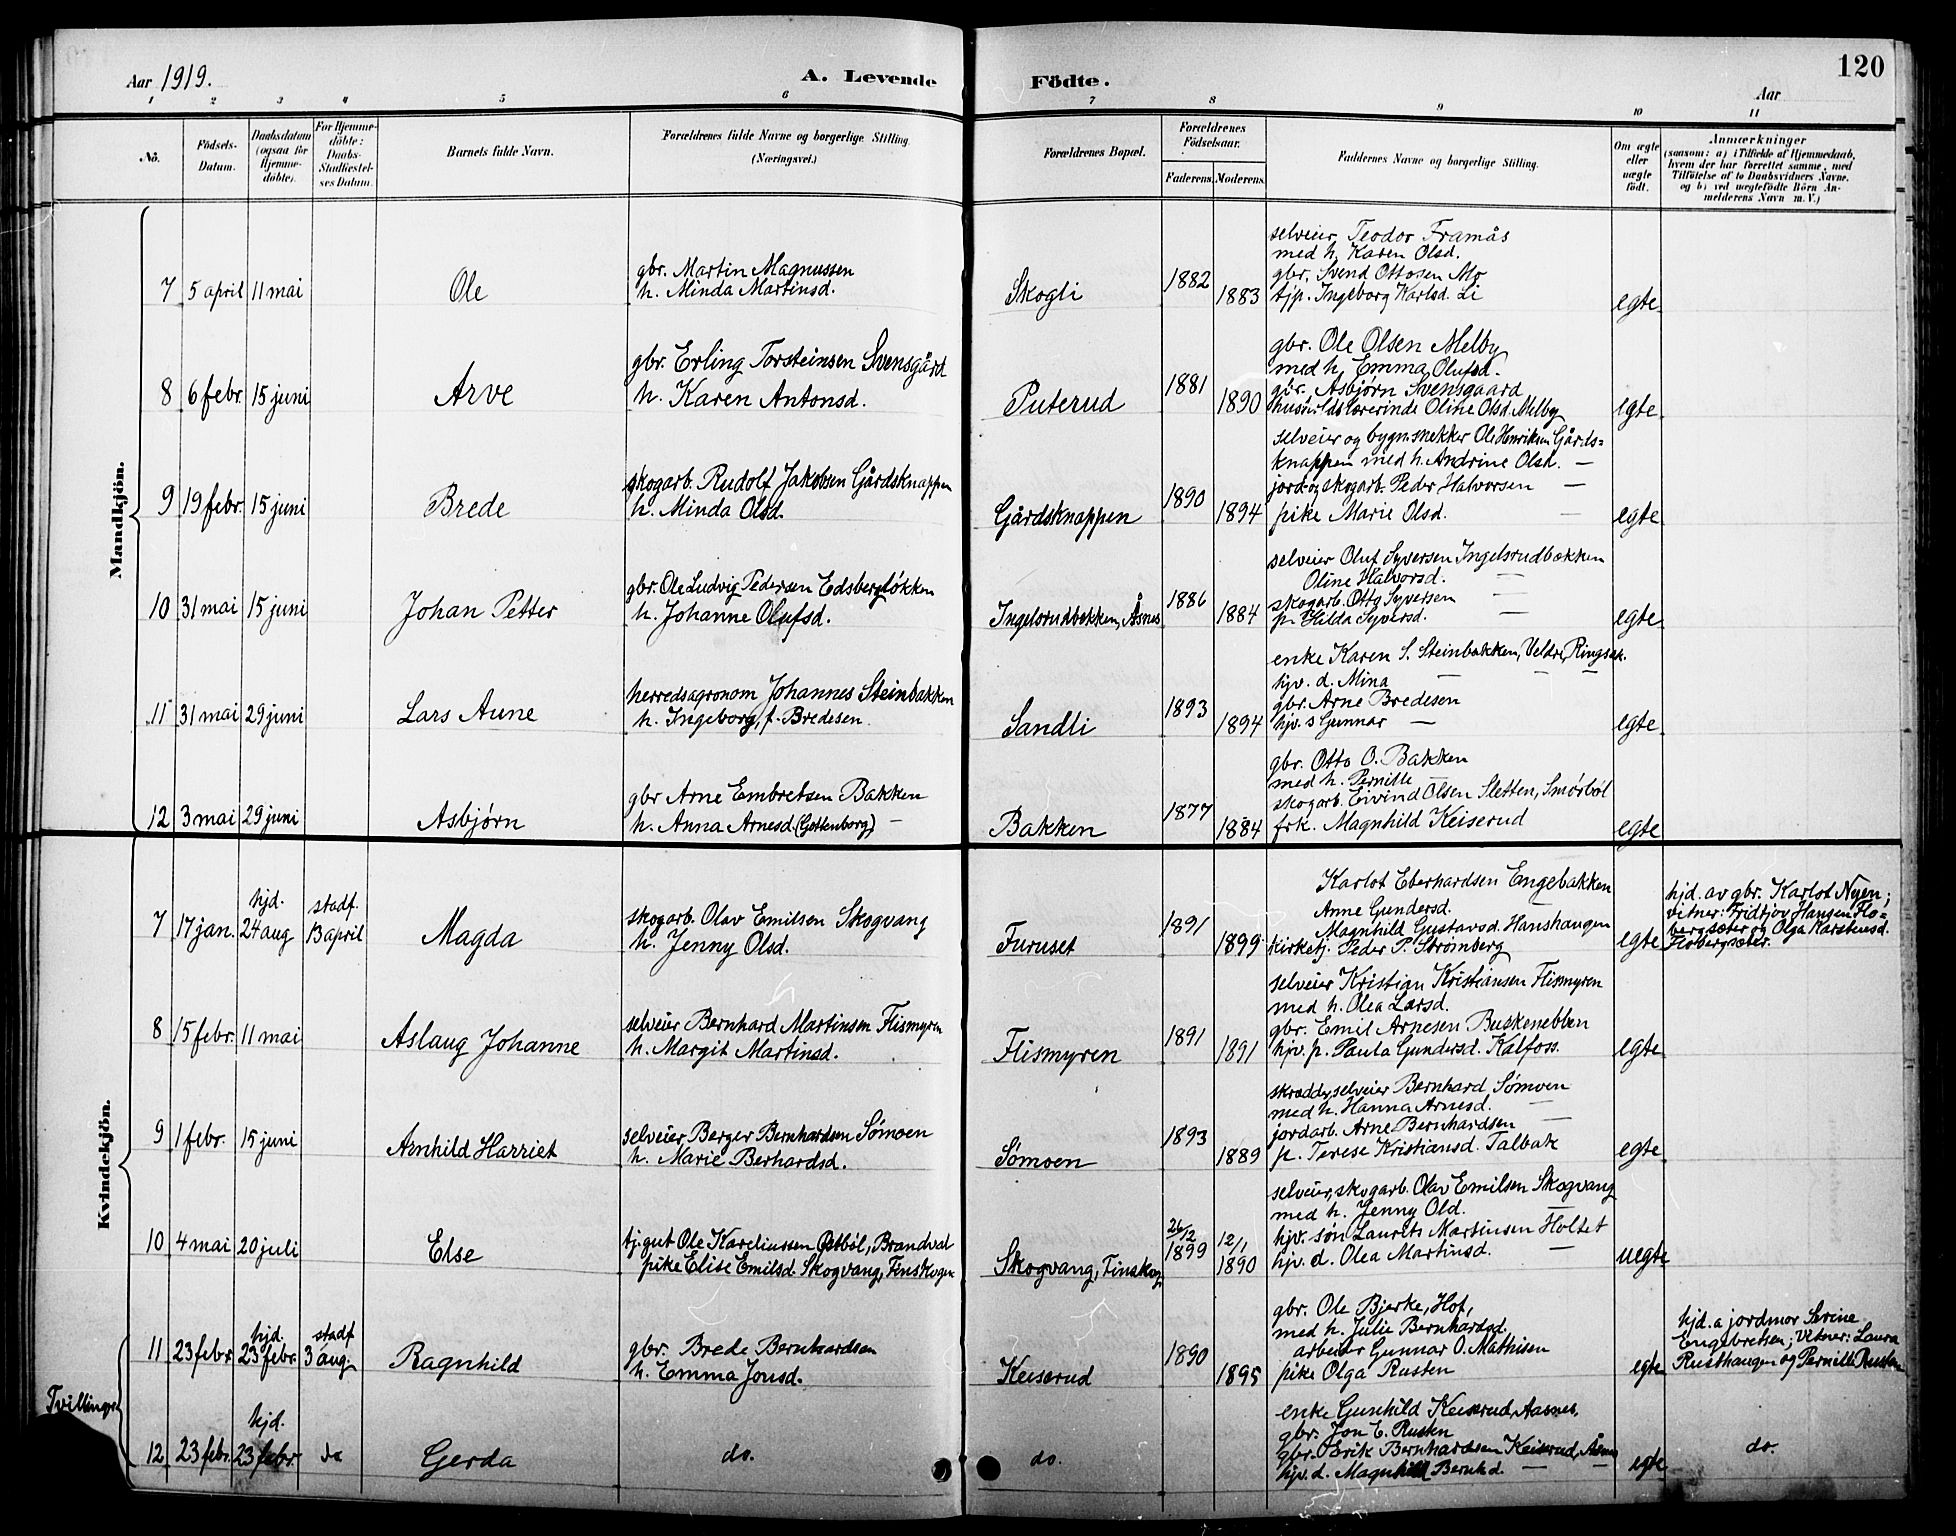 Aar 1919. A. Levende Födte. 120
Aar
1 2 3 4 5 6 7 8 9 10 11
No.
Födsels-Datum.
Daabsdatum (ogsaa for Hjemme-döbte).
For Hjemme-döbte: Daabs-Stadfæstel-ses Datum.
Barnets fulde Navn.
Forældrenes fulde Navne og borgerlige Stilling. (Næringsvei.)
Forældrenes Bopæl.
Forældrenes Födselsaar.
Faderens. Moderens.
Faddernes Navne og borgerlige Stilling.
Om ægte eller uægte födt.
Anmærkninger
(saasom: a) i Tilfælde af Hjemmedaab, hvem der har forrettet samme, med Tilföielse af to Daabsvidners Navne, og b) ved uægtefödte Börn An-melderens Navn m. V.)
Mandkjön.
7 5 april 11 mai Ole
gbr. Martin Magnussen
h. Minda Martinsd.
Skogli 1882 1883
selveier Teodor Framås
med h. Karen Olsd.
gbr. Svend Ottosen Mo
tjp. Ingeborg Karlsd. Li
egte
8 6 febr. 15 juni Arve
gbr. Erling Torsteinsen Svensgård
h. Karen Antonsd.
Puterud 1881 1890
gbr. Ole Olsen Melby
med h. Emma Olufsd.
gbr. Asbjørn Svensgaard
husholdslærerinde Oline Olsd. Melby
egte
9 19 febr. 15 juni Brede
skogarb. Rudolf Jakobsen Gårdsknappen
h. Minda Olsd.
Gårdsknappen 1890 1894
selveier og bygn.snekker Ole Henriksen Gårds=
knappen med h. Andrine Olsd. —
jord- og skogarb. Peder Halvorsen —
pike Marie Olsd. —
egte
10 31 mai 15 juni Johan Petter
gbr. Ole Ludvig Pedersen Edsbergløkken
h. Johanne Olufsd.
Ingelsrudbækken, Åsnes 1886 1884
selveier Oluf Syversen Ingelsrudbækken
Oline Halvorsd. —
skogarb. Otto Syversen —
p. Hilda Syversd. —
egte
11 31 mai 29 juni Lars Aune
herredsagronom Johannes Steinbakken
h. Ingeborg, f. Bredesen
Sandli 1893 1894
enke Karen S. Steinbakken, Veldre, Ringsak.
hjv. d. Mina — — —
gbr. Arne Bredesen
hjv. s Gunnar —
egte
12 3 mai 29 juni Asbjørn
gbr Arne Embretsen Bakken
h. Anna Arnesd. (Gottenborg) —
Bakken 1877 1884
gbr. Otto O. Bakken
med h. Pernille —
skogarb. Eivind Olsen Sletten, Smørbøl
frk. Magnhild Keiserud
egte
Kvindekjön.
7 17 jan. hjd. 24 aug stadf. 13 april Magda
skogarb. Olav Emilsen Skogvang
h. Jenny Olsd.
Furuset 1891 1899
Karlot Eberhardsen Engebakken
Anne Gundersd. —
Magnhild Gustavsd. Hanshaugen
kirketj. Peder P. Strømberg
egte
hjd. av gbr. Karlot Nyen;
vitner: Fridtjov Hansen Flo=
bergsæter og Olga Karstensd.
Flobergsæter.
8 15 febr. 11 mai Aslaug Johanne
selveier Bernhard Martinsen Flismyren
h. Margit Martinsd.
Flismyren 1891 1891
selveier Kristian Kristiansen Flismyren
med h. Olea Larsd.
gbr. Emil Arnesen Buskenebben
hjv. p. Paula Gundersd. Kalfoss.
egte
9 1 febr. 15 juni Arnhild Harriet
selveier Berger Bernhardsen Sømoen
h. Marie Berhardsd.
Sømoen 1893 1889
skrædder, selveier Bernhard Sømoen
med h. Hanna Arnesd. —
jordarb. Arne Bernhardsen —
p. Terese Kristiansd. Talbak
egte
10 4 mai 20 juli Else
tj. gut Ole Kareliussen Østbøl, Brandval
pike Elise Emilsd. Skogvang, Finskogen
Skogvang, Finskog. 26/12 1899 12/1 1890
selveier, skogarb. Olav Emilsen Skogvang
med h. Jenny Old. —
hjv. søn Laurits Martinsen Holtet
hjv. d. Olea Martinsd. —
uegte
Tvillinger
11 23 febr. hjd. 23 febr. stadf 3 aug. Ragnhild
gbr. Brede Bernhardsen
h. Emma Jonsd.
Keiserud 1890 1895
gbr. Ole Bjerke, Hof,
med h. Julie Bernhardsd.
arbeider Gunnar O. Mathisen
pike Olga Rusten
egte
hjd. a jordmor Serine
Engebretsen; vitner: Laura
Rusthaugen og Pernille Rusten
12 23 febr. hjd. 23 febr. do Gerda
do.
do.
enke Gunhild Keiserud, Aasnes,
gbr. Jon E. Rusten
gbr. Erik Bernhardsen Keiserud, Åsnes
hjv. d. Magnhild Bernhd. — —
egte
do.